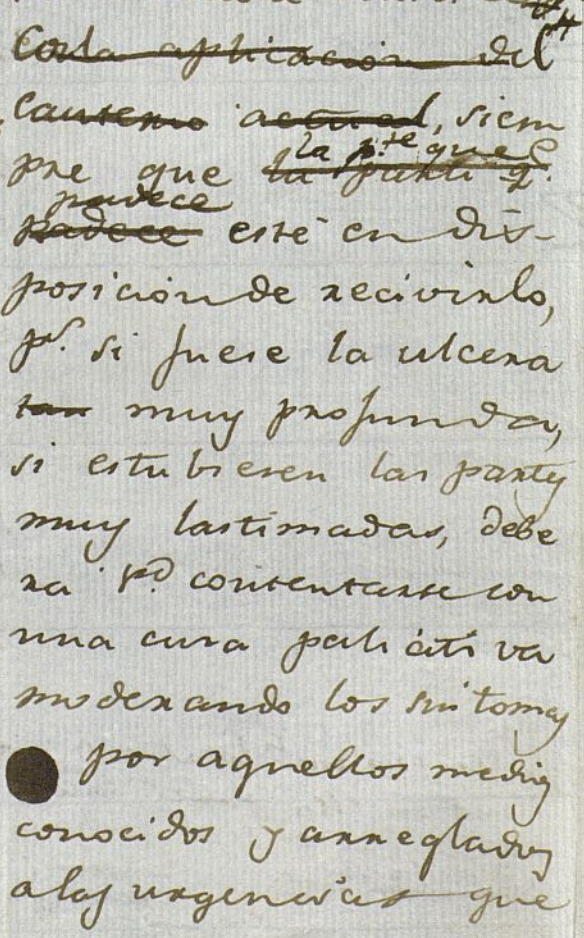 Con la aplicacion del
Cauterio actual, siem
la p.te que
pre que la parte q.
padece
padece esté en dis-
posicion de recivirlo,
p.s si fuese la ulcera
tan muy profunda,
si estubiesen las partes
muy lastimadas, debe
ra V.d contentarse con
una cura paliativa
moderando los sintomas
por aquellos medios
conocidos y arreglados
a las urgencias que